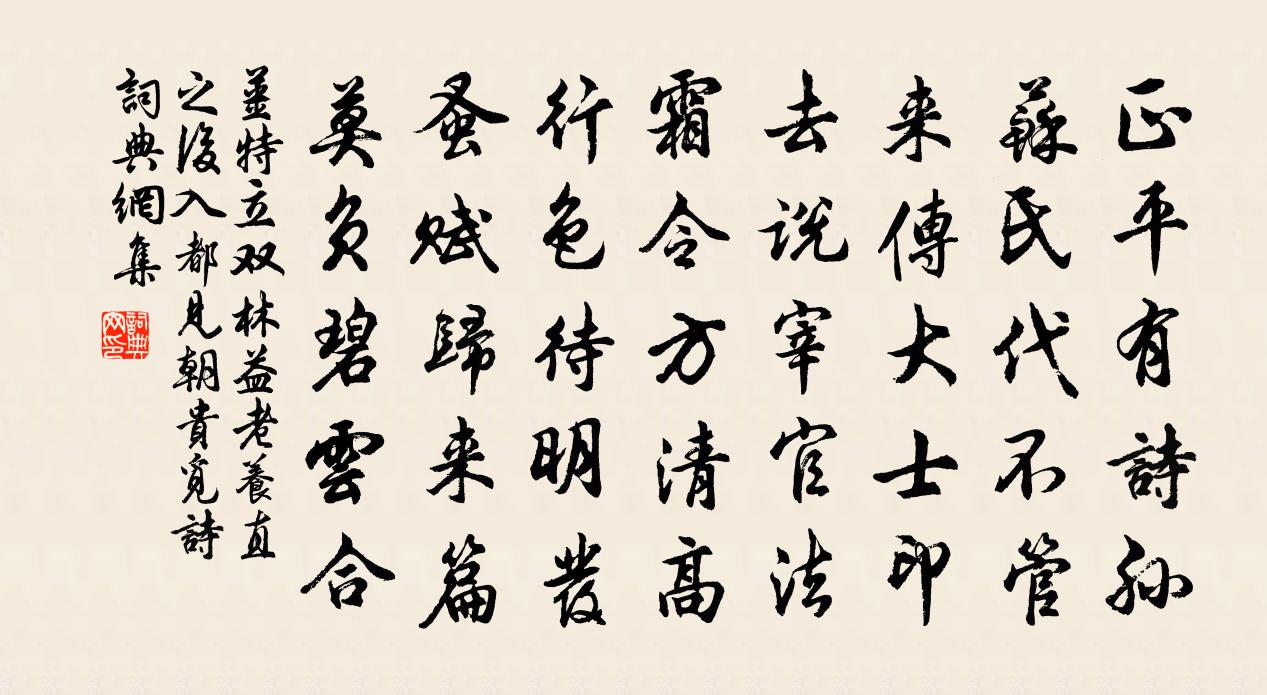 正平有詩孫
蘇氏代不管
来傳大士印
去說宰官法
霜令方清高
行色待明發
蚤賦歸来篇
莫負碧雲合
薑特立双林益老養直
之後入都見朝貴覓詩
詞典網集
詞典网印